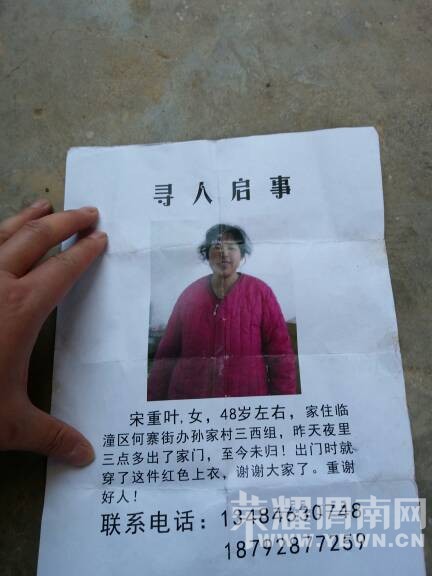 寻人启事
宋重叶,女，48岁左右，家住临
潼区何寨街办孙家村三西组，昨天夜里
三点多出了家门，至今未归！出门时就
穿了这件红色上衣，谢谢大家了。重谢
好人！
联系电话：13484630748
18792877259
荣耀渭南网